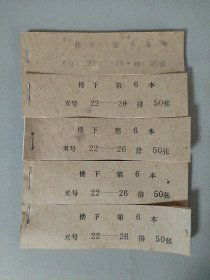 楼下第6本
双号 22——26排 50张
楼下第6本
双号 22——26排 50张
楼下第6本
双号 22——26排 50张
楼下第6本
双号 22——26排 50张
楼下第6本
双号 22——26排 50张